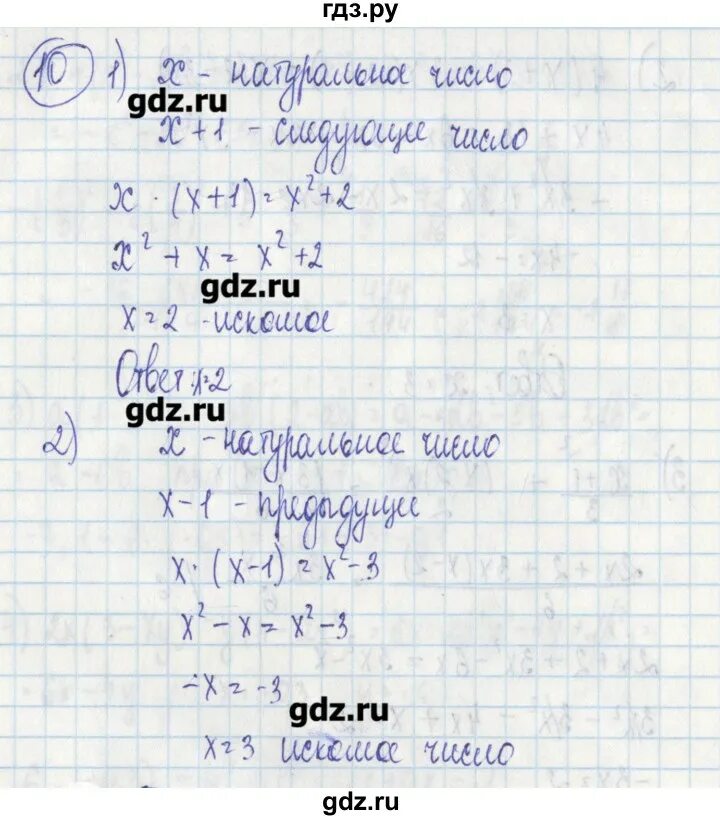 гдз.ру
10 1) x - натуральное число
gdz.ru
x+1 - следующее число
x · (x+1) = x²+2
x² + x = x²+2
gdz.ru
x=2 - искомое
Ответ: x=2
gdz.ru
2) x - натуральное число
x-1 - предыдущее
x · (x-1) = x²-3
x² - x = x² - 3
-x = -3
gdz.ru
x=3 искомое число
gdz.ru